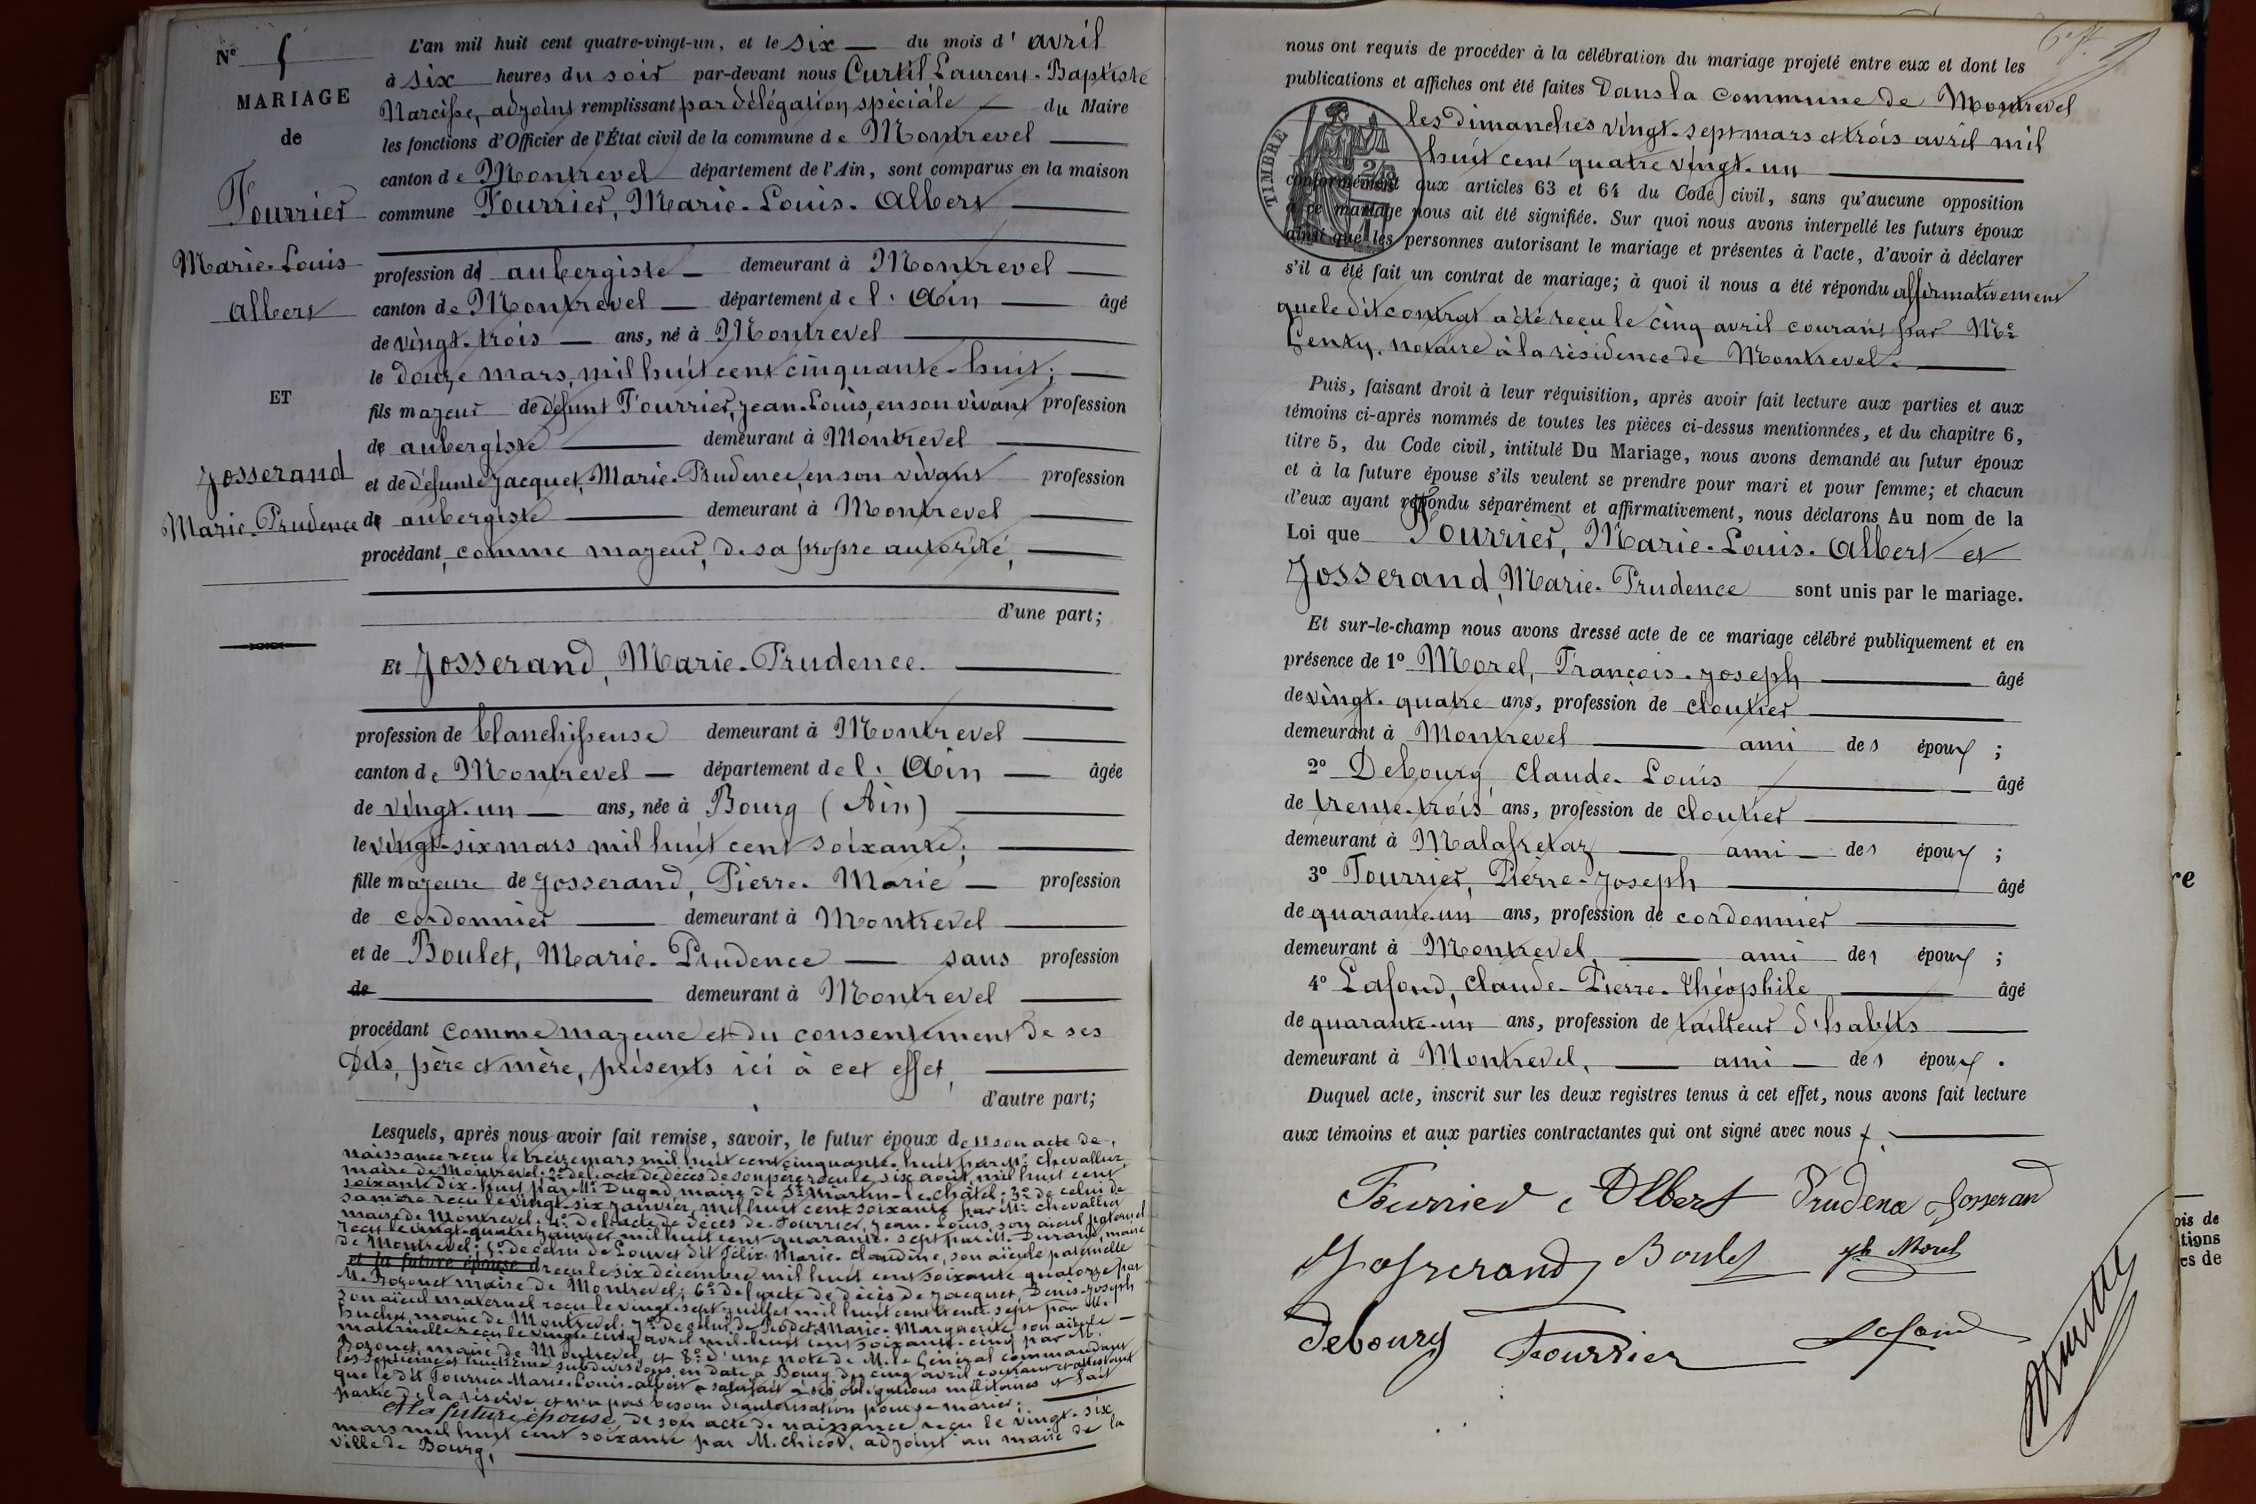 N° 5
MARIAGE
de
Fourrier
Marie-Louis
Albert
ET
Josserand
Marie-Prudence
L'an mil huit cent quatre-vingt-un, et le six du mois d'avril
à six heures du soir par-devant nous Curtil Laurent-Baptiste
Narcisse, adjoint remplissant par délégation spéciale du Maire
les fonctions d'Officier de l'État civil de la commune de Montrevel
canton de Montrevel département de l'Ain, sont comparus en la maison
commune Fourrier, Marie-Louis-Albert
profession d' aubergiste demeurant à Montrevel
canton de Montrevel département de l'Ain âgé
de vingt-trois ans, né à Montrevel
le douze mars, mil huit cent cinquante-huit;
fils majeur de défunt Fourrier, Jean-Louis, en son vivant profession
d' aubergiste demeurant à Montrevel
et de défunte Jacquet, Marie-Prudence, en son vivant profession
d' aubergiste demeurant à Montrevel
procédant, comme majeur, de sa propre autorité,
d'une part;
Et Josserand, Marie-Prudence.
profession de blanchisseuse demeurant à Montrevel
canton de Montrevel département de l'Ain âgée
de vingt-un ans, née à Bourg (Ain)
le vingt-six mars mil huit cent soixante;
fille majeure de Josserand, Pierre-Marie profession
de cordonnier demeurant à Montrevel
et de Boulet, Marie-Prudence sans profession
de demeurant à Montrevel
procédant comme majeure et du consentement de ses
dits, père et mère, présents ici à cet effet,
d'autre part;
Lesquels, après nous avoir fait remise, savoir, le futur époux de 1° son acte de
naissance reçu le treize mars mil huit cent cinquante-huit par Mr Chevallier
maire de Montrevel; 2° de l'acte de décès de son père reçu le six août, mil huit cent
soixante dix-huit par Mr Dugad, maire de St Martin-le-Châtel; 3° de celui de
sa mère reçu le vingt-six janvier, mil huit cent soixante par Mr Chevallier
maire de Montrevel; 4° de l'acte de décès de Fourrier, Jean-Louis, son aïeul paternel
reçu le vingt-quatre janvier mil huit cent quarante-sept par M. Durand, maire
de Montrevel; 5° de celui de Louvet dit Félix Marie-Claudine, son aïeule paternelle
et la future épouse d reçu le six décembre mil huit cent soixante quatorze par
M. Bozonet maire de Montrevel; 6° de l'acte de décès de Jacquet, Denis-Joseph
son aïeul maternel reçu le vingt-sept juillet mil huit cent trente-sept par M.
Buchet, maire de Montrevel; 7° de celui de Piodet, Marie-Marguerite son aïeule
maternelle reçu le vingt-cinq avril mil-huit cent soixante-cinq par M.
Bozonet, maire de Montrevel; et 8° d'une note de M. le Général commandant
les septième et huitième subdivisions, en date à Bourg du cinq avril courant et attestant
que le dit Fourrier Marie-Louis-Albert a satisfait à ses obligations militaires et fait
partie de la réserve et n'a pas besoin d'autorisation pour se marier;
Et la future épouse, de son acte de naissance reçu le vingt-six
mars mil huit cent soixante par M. Chicod, adjoint au maire de la
ville de Bourg,
nous ont requis de procéder à la célébration du mariage projeté entre eux et dont les
publications et affiches ont été faites Dans la commune de Montrevel
les dimanches vingt-sept mars et trois avril mil
huit cent quatre vingt-un
TIMBRE
conformément aux articles 63 et 64 du Code civil, sans qu'aucune opposition
à ce mariage nous ait été signifiée. Sur quoi nous avons interpellé les futurs époux
ainsi que les personnes autorisant le mariage et présentes à l'acte, d'avoir à déclarer
s'il a été fait un contrat de mariage; à quoi il nous a été répondu affirmativement
que le dit contrat a été reçu le cinq avril courant par Me
Genty, notaire à la résidence de Montrevel.
Puis, faisant droit à leur réquisition, après avoir fait lecture aux parties et aux
témoins ci-après nommés de toutes les pièces ci-dessus mentionnées, et du chapitre 6,
titre 5, du Code civil, intitulé Du Mariage, nous avons demandé au futur époux
et à la future épouse s'ils veulent se prendre pour mari et pour femme; et chacun
d'eux ayant répondu séparément et affirmativement, nous déclarons Au nom de la
Loi que Fourrier, Marie-Louis-Albert et
Josserand, Marie-Prudence sont unis par le mariage.
Et sur-le-champ nous avons dressé acte de ce mariage célébré publiquement et en
présence de 1° Morel, François-Joseph âgé
de vingt-quatre ans, profession de cloutier
demeurant à Montrevel ami des époux;
2° Debourg Claude-Louis âgé
de trente-trois ans, profession de cloutier
demeurant à Malafretaz ami des époux;
3° Fourrier, Pierre-Joseph âgé
de quarante-un ans, profession de cordonnier
demeurant à Montrevel, ami des époux;
4° Lafond, Claude-Pierre-Théophile âgé
de quarante-un ans, profession de tailleur d'habits
demeurant à Montrevel, ami des époux.
Duquel acte, inscrit sur les deux registres tenus à cet effet, nous avons fait lecture
aux témoins et aux parties contractantes qui ont signé avec nous
Fourrier Albert Prudence Josserand
Josserand Boulet Morel
Debourg Fourrier Lafond